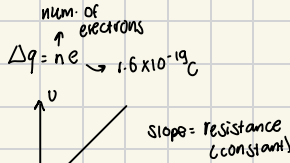 num. of
electrons
Δq = ne → 1.6×10⁻¹⁹C
U
slope = resistance
(constant)